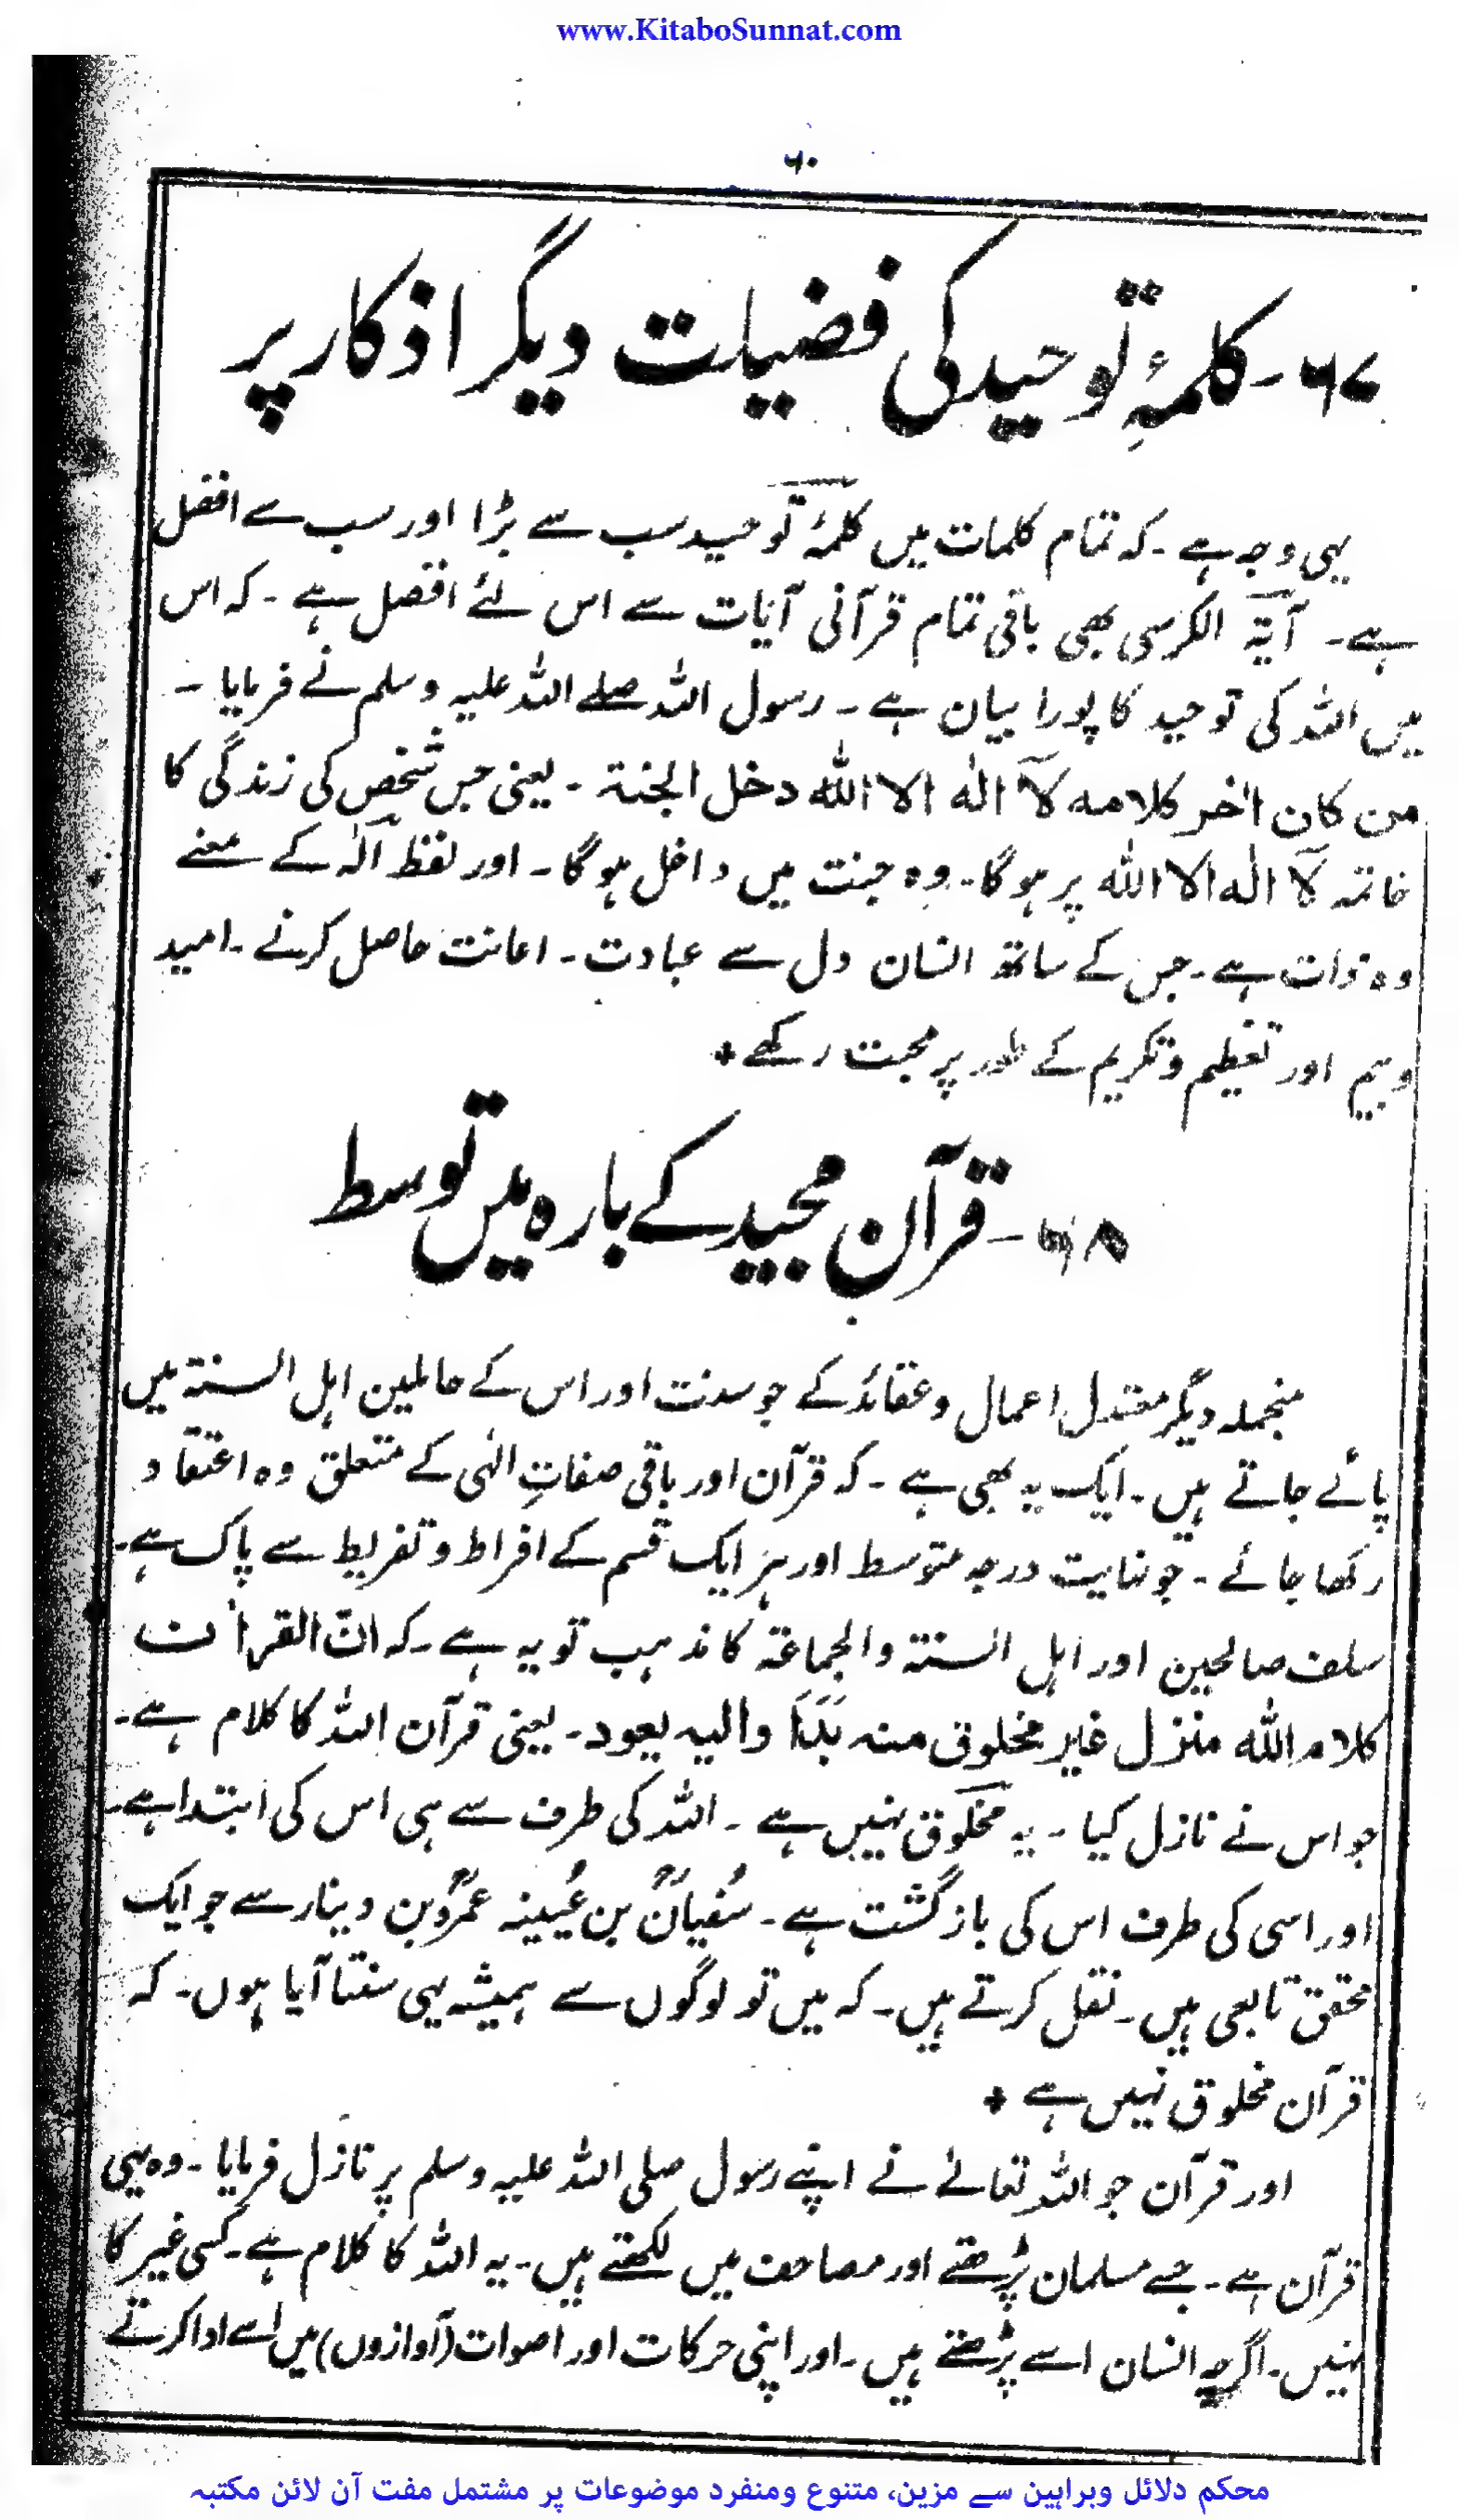 www.KitaboSunnat.com
۶۰
۶۷ - کلمۂ توحید کی فضیلت دیگر اذکار پر
یہی وجہ ہے ۔ کہ تمام کلمات میں کلمۂ توحید سب سے بڑا اور سب سے افضل
ہے ۔ آیۃ الکرسی بھی باقی تمام قرآنی آیات سے اس لئے افضل ہے ۔ کہ اس
میں اللہ کی توحید کا پورا بیان ہے ۔ رسول اللہ صلے اللہ علیہ وسلم نے فرمایا ۔
من کان اٰخر کلامه لآ الٰه الا الله دخل الجنة ۔ یعنی جس شخص کی زندگی کا
خاتمہ لآ الٰه الا الله پر ہوگا ۔ وہ جنت میں داخل ہوگا ۔ اور لفظ الٰہ کے معنے
وہ ذات ہے ۔ جس کے ساتھ انسان دل سے عبادت ۔ اعانت حاصل کرنے ۔ امید
وبیم اور تعظیم و تکریم کے طور پر محبت رکھے +
۶۸ - قرآن مجید کے بارہ میں توسط
منجملہ دیگر معتدل اعمال و عقائد کے جو سنت اور اس کے حاملین اہل السنۃ میں
پائے جاتے ہیں ۔ ایک یہ بھی ہے ۔ کہ قرآن اور باقی صفاتِ الٰہی کے متعلق وہ اعتقاد
رکھا جائے ۔ جو نہایت درجہ متوسط اور ہر ایک قسم کے افراط و تفریط سے پاک ہے ۔
سلف صالحین اور اہل السنۃ والجماعۃ کا مذہب تو یہ ہے ۔ کہ انّ القراٰن
کلام الله منزل غیر مخلوق منه بَدَاَ والیه یعود ۔ یعنی قرآن اللہ کا کلام ہے ۔
جو اس نے نازل کیا ۔ یہ مخلوق نہیں ہے ۔ اللہ کی طرف سے ہی اس کی ابتدا ہے ۔
اور اسی کی طرف اس کی بازگشت ہے ۔ سُفیانؒ بن عُیینہ عمروؒ بن دینار سے جو ایک
محقق تابعی ہیں ۔ نقل کرتے ہیں ۔ کہ میں تو لوگوں سے ہمیشہ یہی سنتا آیا ہوں ۔ کہ
قرآن مخلوق نہیں ہے +
اور قرآن جو اللہ تعالےٰ نے اپنے رسول صلی اللہ علیہ وسلم پر نازل فرمایا ۔ وہ یہی
قرآن ہے ۔ جسے مسلمان پڑھتے اور مصاحف میں لکھتے ہیں ۔ یہ اللہ کا کلام ہے ۔ کسی غیر کا
نہیں ۔ اگرچہ انسان اسے پڑھتے ہیں ۔ اور اپنی حرکات اور اصوات (آوازوں) میں اسے ادا کرتے
محکم دلائل وبراہین سے مزین، متنوع ومنفرد موضوعات پر مشتمل مفت آن لائن مکتبہ